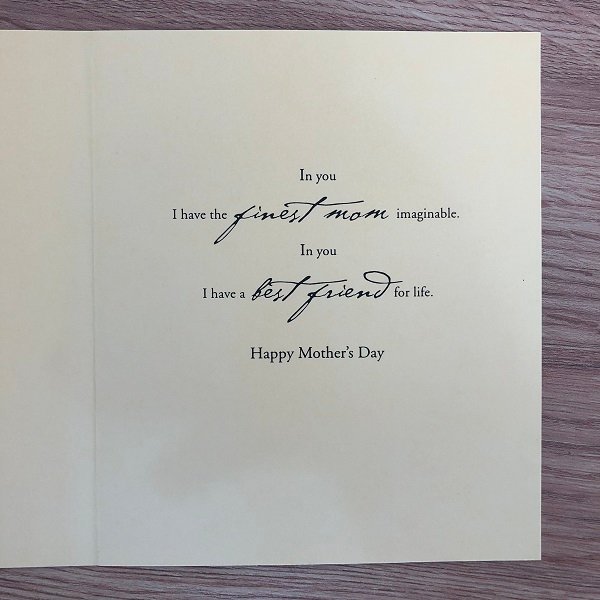 In you
I have the finest mom imaginable.
In you
I have a best friend for life.
Happy Mother's Day